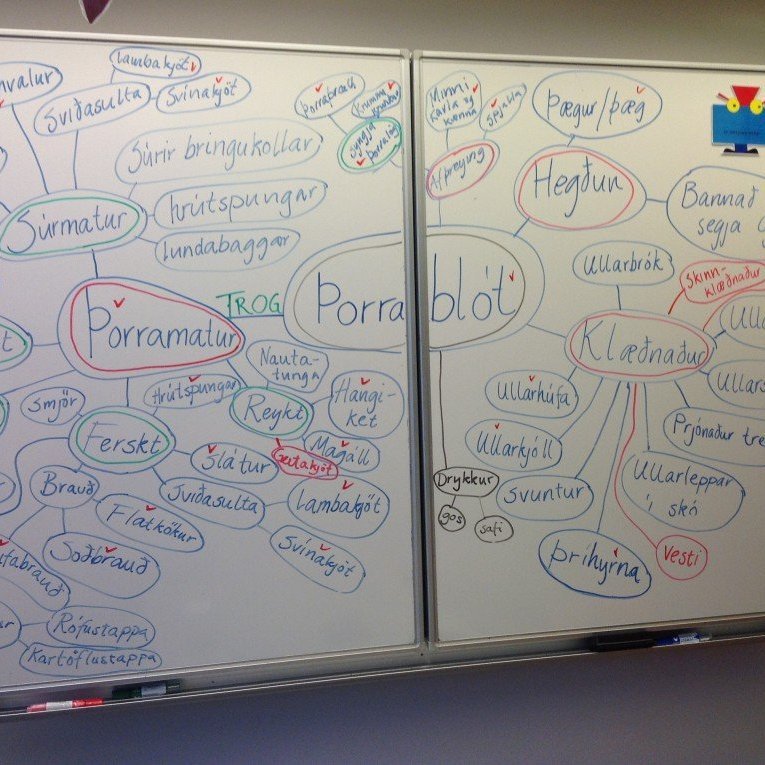 Lambakjöt
Sviðasulta
Svínakjöt
Súrmatur
Súrir bringukollar
hrútspungar
lundabaggar
Þorrabrauð
syngja
þorralög
Þorramatur
TROG
Þorra
blót
Minni
karla og
kvenna
spjalla
Afþreying
Þægur/þæg
Hegðun
Bannað
segja
Ullarbrók
Skinn-
klæðnaður
Klæðnaður
Ull
Ullars
Ullarhúfa
Ullarkjóll
Svuntur
Þríhyrna
Vesti
Ullarleppar
í skó
Prjónaður tre
Drykkur
gos
safi
Nauta-
tunga
Hangi-
ket
Reykt
Magáll
Geitakjöt
Hrútspungar
Smjör
Ferskt
Slátur
Sviðasulta
Lambakjöt
Svínakjöt
Brauð
Flatkökur
Soðbrauð
fabrauð
Rófustappa
Kartöflustappa